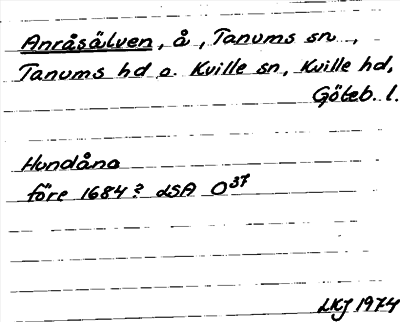 Anråsälven, å, Tanums sn,
Tanums hd o. Kville sn, Kville hd,
Göteb. l.
Hundåna
före 1684? LSA O37
LKJ 1974